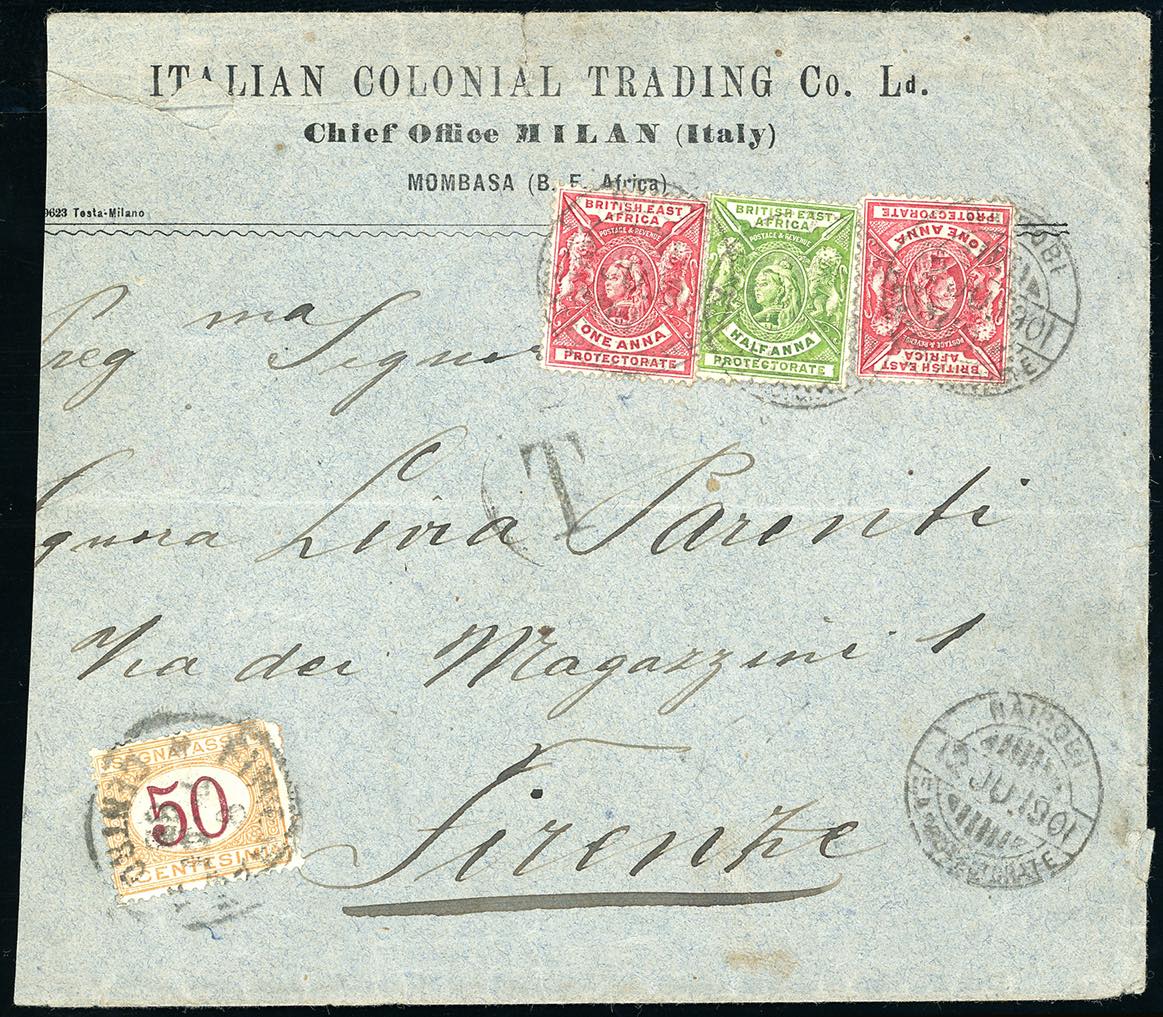 ITALIAN COLONIAL TRADING Co. Ld.
Chief Office MILAN (Italy)
MOMBASA (B. E. Africa)
9623 Testa-Milano
BRITISH EAST
AFRICA
POSTAGE & REVENUE
ONE ANNA
PROTECTORATE
BRITISH EAST
AFRICA
POSTAGE & REVENUE
HALF ANNA
PROTECTORATE
BRITISH EAST
AFRICA
POSTAGE & REVENUE
ONE ANNA
PROTECTORATE
OBI
1901
TE
Preg ma Signor
T
gnora Livia Parenti
Via dei Magazzini 1
Firenze
SEGNATASSE
50
CENTESIMI
CENTRO
NAIROBI
12 JU 1901
E.A. PROTECTORATE